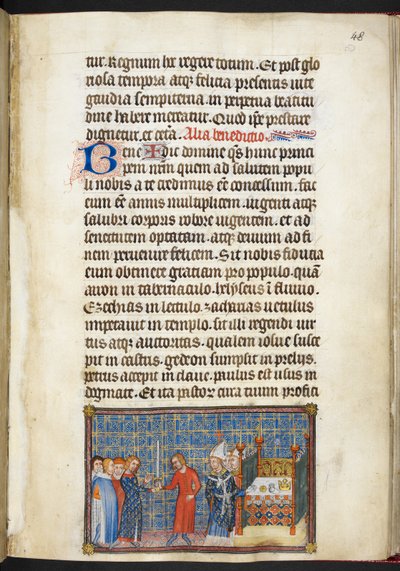 48
tur. Regnum hoc regere totum. Et post glo
riosa tempora atq; felicia presentis uite
gaudia sempiterna in perpetua beatitu
dine habere mereatur. Quod ipse prestare
dignetur. et cetera. Alia benedictio.
Bene✠dic domine qs hunc princi
pem nrm quem ad salutem popu
li nobis a te credimus esse concessum. fac
eum esse annis multiplicem. uigenti atq;
salubri corporis robore uigentem. et ad
senectutem optatam. atq; demum ad fi
nem peruenire felicem. Sit nobis fiducia
eum obtinere gratiam pro populo. quam
aaron in tabernaculo. helyseus in fluuio.
Ezechias in lectulo. zacharias uetulus
impetrauit in templo. sit illi regendi uir
tus atq; auctoritas. qualem iosue susce
pit in castris. gedeon sumpsit in prelijs.
petrus accepit in claue. paulus est usus in
dogmate. Et ita pastorum cura tuum profici